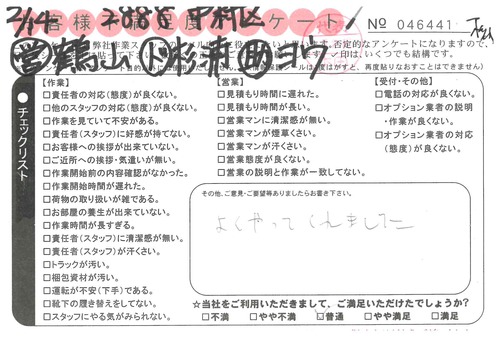 2/14 2888 中村区
お客様満足度アンケート
No 046441
営 鶴山 杉浦 助 ヨウ
否定的なアンケートになりますので、
いくつでも結構です。
チェックリスト
【作業】
□責任者の対応(態度)が良くない。
□他のスタッフの対応(態度)が良くない。
□作業を見ていて不安がある。
□責任者(スタッフ)に好感が持てない。
□お客様への挨拶が出来ていない。
□ご近所への挨拶・気遣いが無い。
□作業開始前の内容確認がなかった。
□作業開始時間が遅れた。
□荷物の取り扱いが雑である。
□お部屋の養生が出来ていない。
□作業時間が長すぎる。
□責任者(スタッフ)に清潔感が無い。
□責任者(スタッフ)が汗くさい。
□トラックが汚い。
□梱包資材が汚い。
□運転が不安(下手)である。
□靴下の履き替えをしてない。
□スタッフにやる気がみられない。
【営業】
□見積もり時間に遅れた。
□見積もり時間が長い。
□営業マンに清潔感が無い。
□営業マンが煙草くさい。
□営業マンが汗くさい。
□営業態度が良くない。
□営業の説明と作業が一致してない。
【受付・その他】
□電話の対応が良くない。
□オプション業者の説明
・作業が良くない。
□オプション業者の対応
(態度)が良くない。
その他、ご意見・ご要望等ありましたらお書き下さい。
よくやってくれました
☆当社をご利用いただきまして、ご満足いただけたでしょうか?
□不満 □やや不満 □普通 □やや満足 □満足